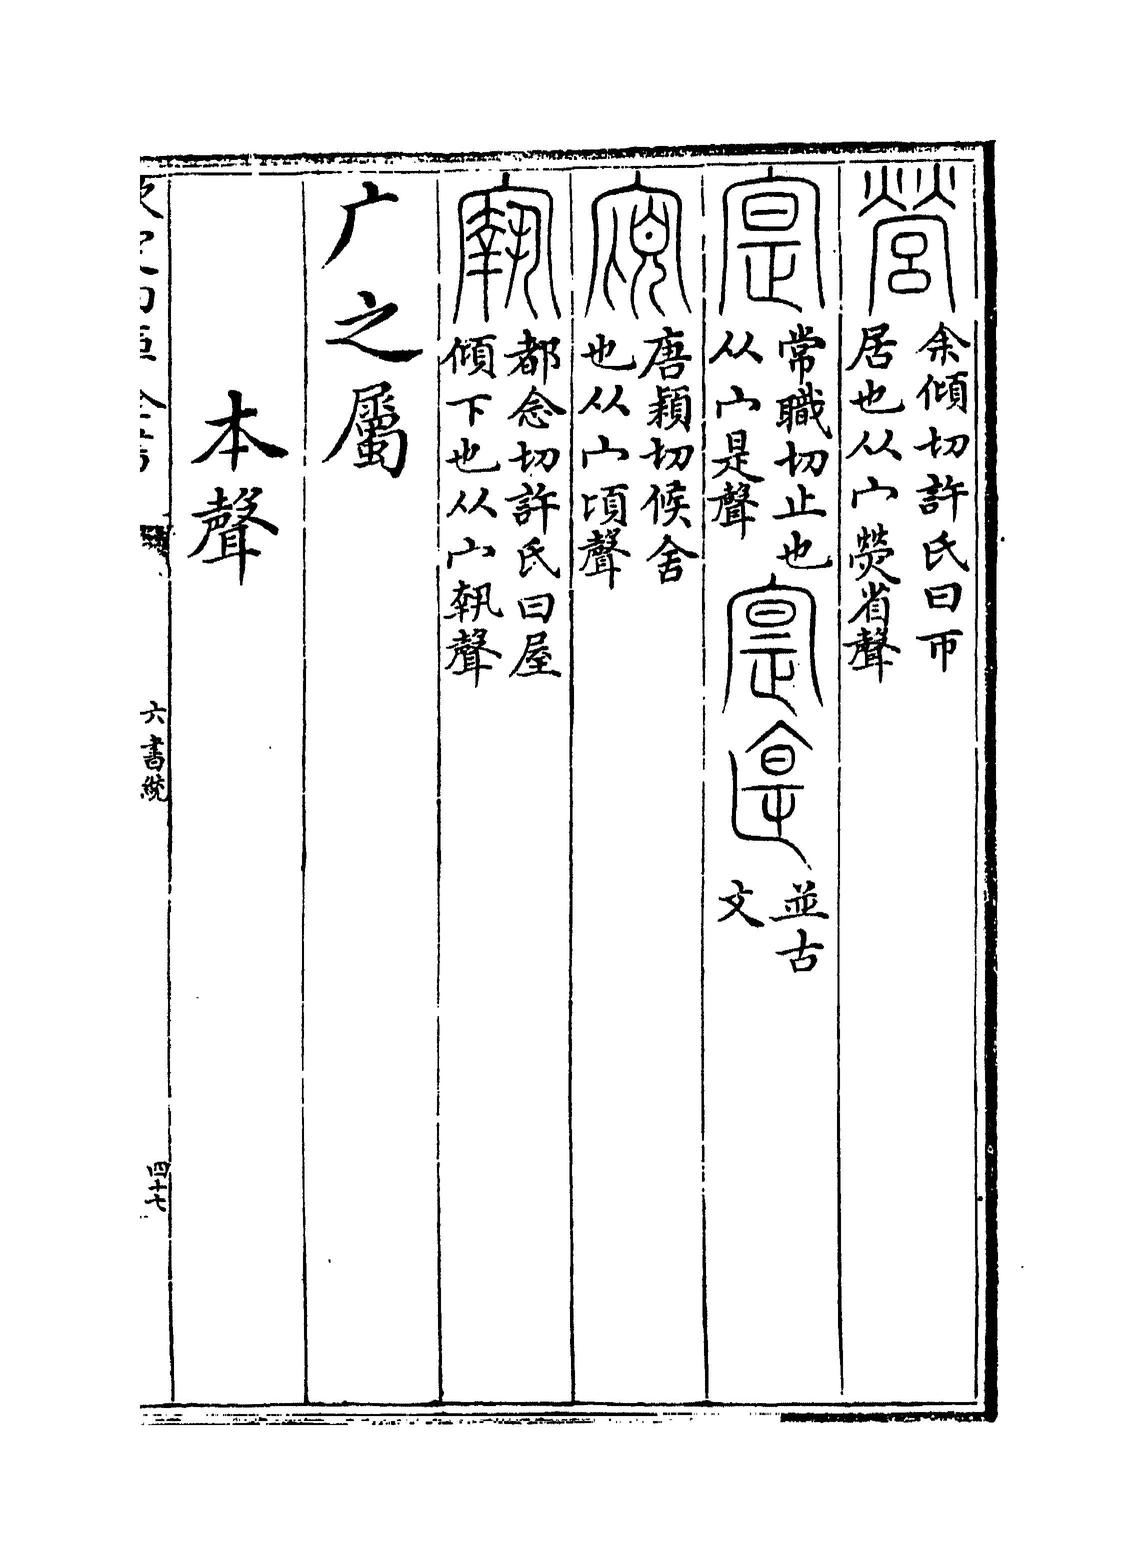 營 余傾切許氏曰帀
居也从宀熒省聲
寔 常職切止也
从宀是聲
並古
文
唐穎切候舍
也从宀頃聲
都念切許氏曰屋
傾下也从宀執聲
广之屬
本聲
六書統
四十七